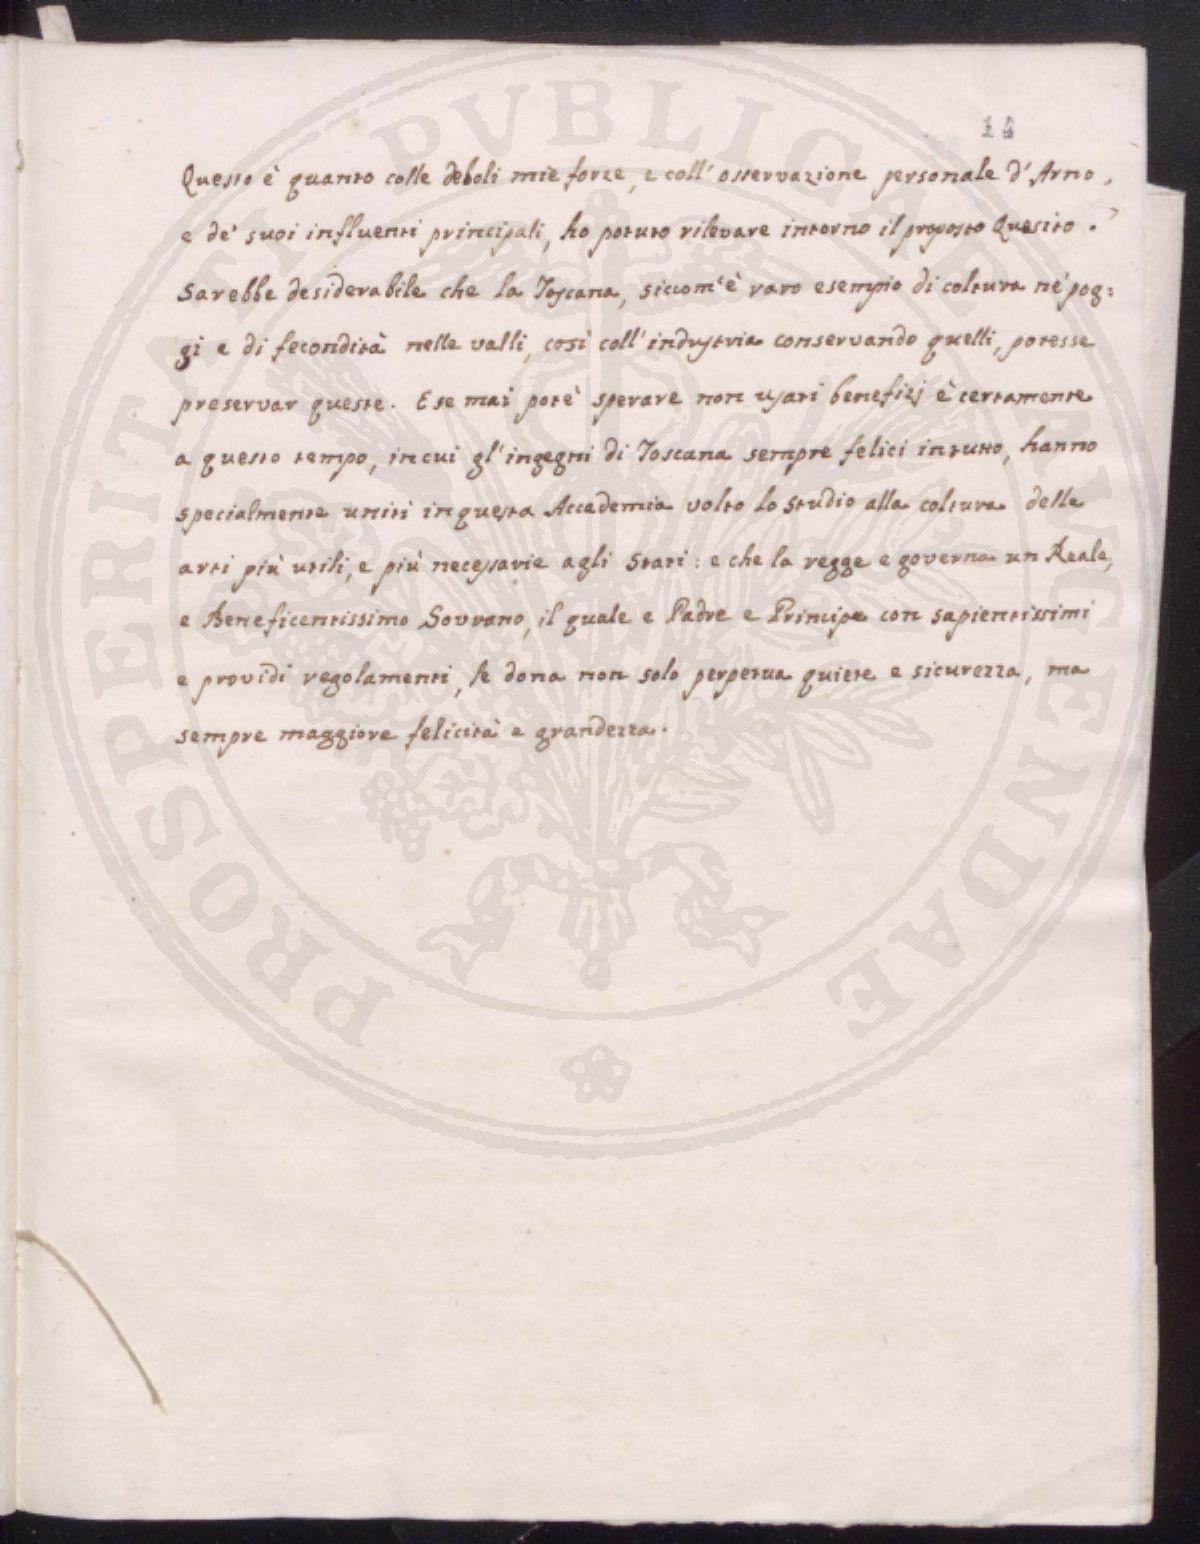 14
Questo è quanto colle deboli mie forze, e coll' osservazione personale d' Arno,
e de' suoi influenti principali, ho potuto rilevare intorno il proposto Quesito.
Sarebbe desiderabile che la Toscana, siccom'è raro esempio di coltura ne' pog:
gi e di fecondità nelle valli, così coll' industria conservando quelli, potesse
preservar queste. E se mai potè sperare non usati beneficj è certamente
a questo tempo, in cui gl' ingegni di Toscana sempre felici in tutto, hanno
specialmente uniti in questa Accademia volto lo studio alla coltura delle
arti più utili, e più necessarie agli Stati: e che la regge e governa un Reale,
e Beneficentissimo Sovrano, il quale e Padre e Principe con sapientissimi
e providi regolamenti, le dona non solo perpetua quiete e sicurezza, ma
sempre maggiore felicità e grandezza.
PROSPERITATI PUBLICAE AUGENDAE